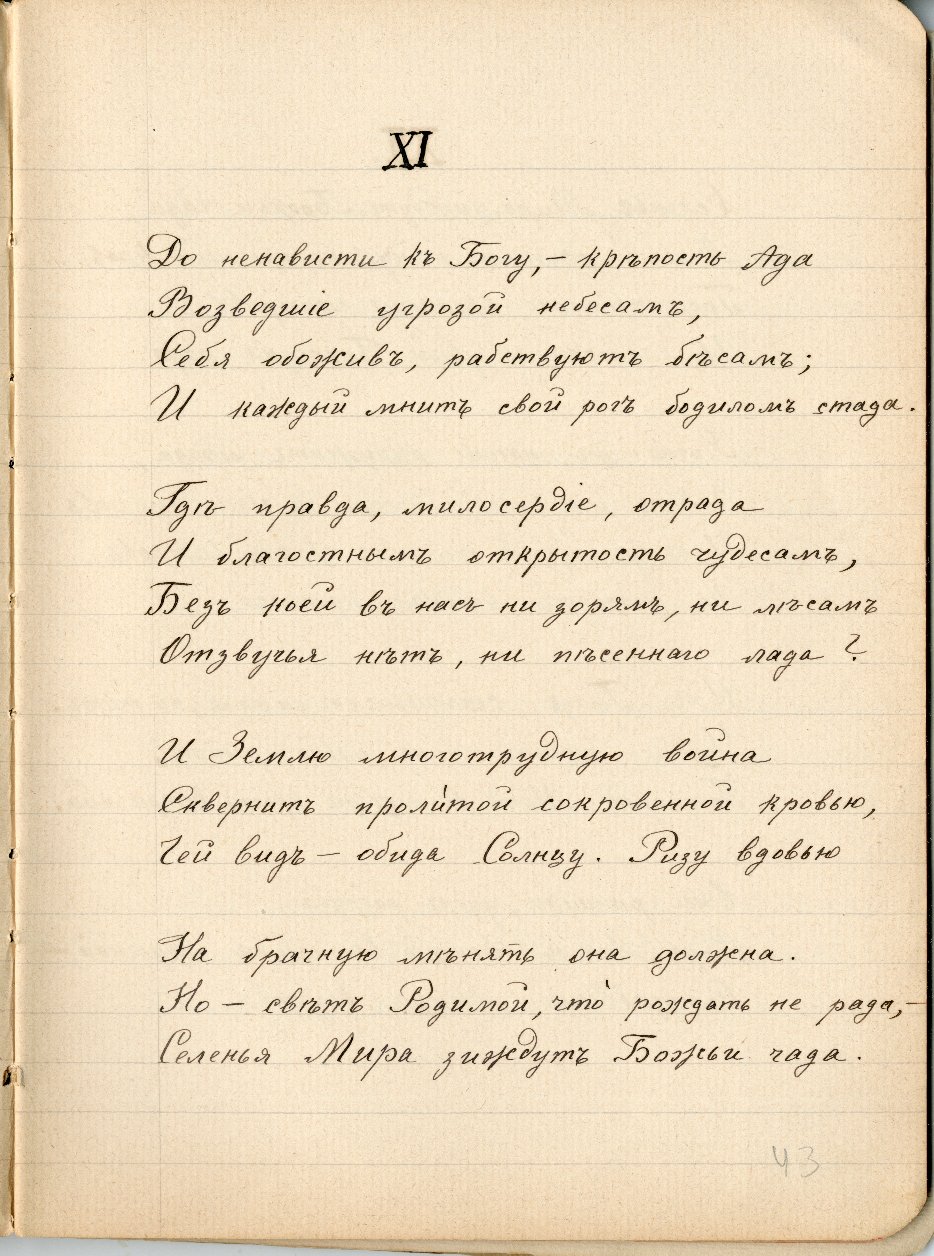 XI
До ненависти къ Богу, – крѣпость Ада
Возведшіе угрозой небесамъ,
Себя обоживъ, рабствуютъ бѣсамъ;
И каждый мнитъ свой рогъ бодиломъ стада.
Гдѣ правда, милосердіе, отрада
И благостнымъ открытость чудесамъ,
Безъ коей въ насъ ни зорямъ, ни лѣсамъ
Отзвучья нѣтъ, ни пѣсеннаго лада?
И Землю многотрудную война
Сквернитъ проли́той сокровенной кровью,
Чей видъ – обида Солнцу. Ризу вдовью
На брачную мѣнять она должна.
Но – свѣтъ Родимой, что́ рождать не рада, –
Селенья Мира зиждутъ Божьи чада.
43